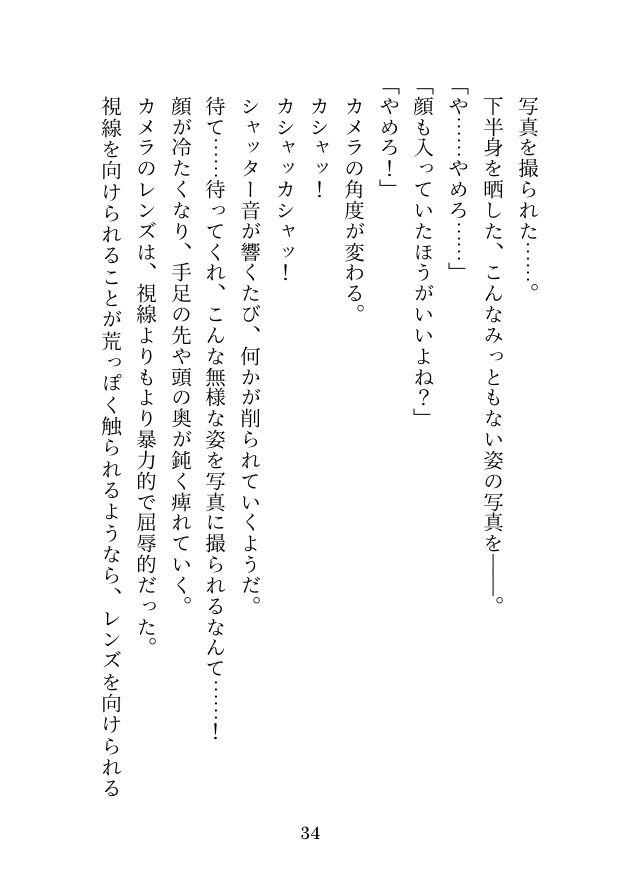 写真を撮られた……。
下半身を晒した、こんなみっともない姿の写真を――。
「や……やめろ……」
「顔も入っていたほうがいいよね？」
「やめろ！」
カメラの角度が変わる。
カシャッ！
カシャッカシャッ！
シャッター音が響くたび、何かが削られていくようだ。
待て……待ってくれ、こんな無様な姿を写真に撮られるなんて……！
顔が冷たくなり、手足の先や頭の奥が鈍く痺れていく。
カメラのレンズは、視線よりもより暴力的で屈辱的だった。
視線を向けられることが荒っぽく触られるようなら、レンズを向けられる
34